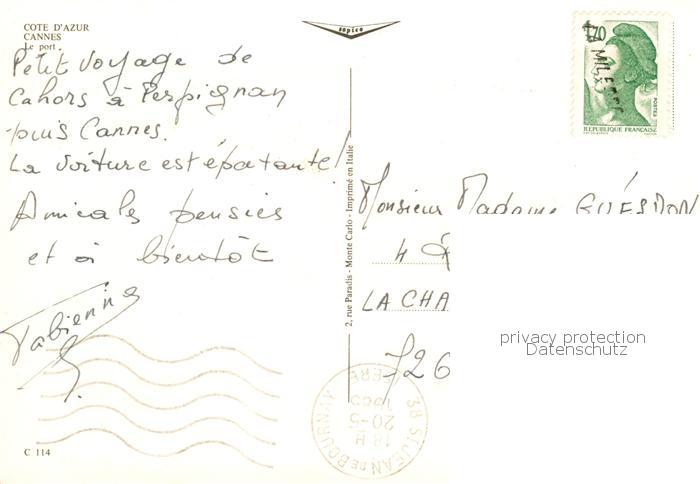 COTE D'AZUR
CANNES
Le port
Petit voyage de
Cahors à Perpignan
puis Cannes.
La voiture est épatante!
Amicales pensées
et à bientôt
Fabienne
C 114
sopico
2, rue Paradis - Monte Carlo - Imprimé en Italie
1,70
POSTES
REPUBLIQUE FRANÇAISE
Monsieur Madame GUÉSDON
4
LA CHA
726
privacy protection
Datenschutz
38 ST JEAN DE BOURNAY
18 H
20-5
ISERE